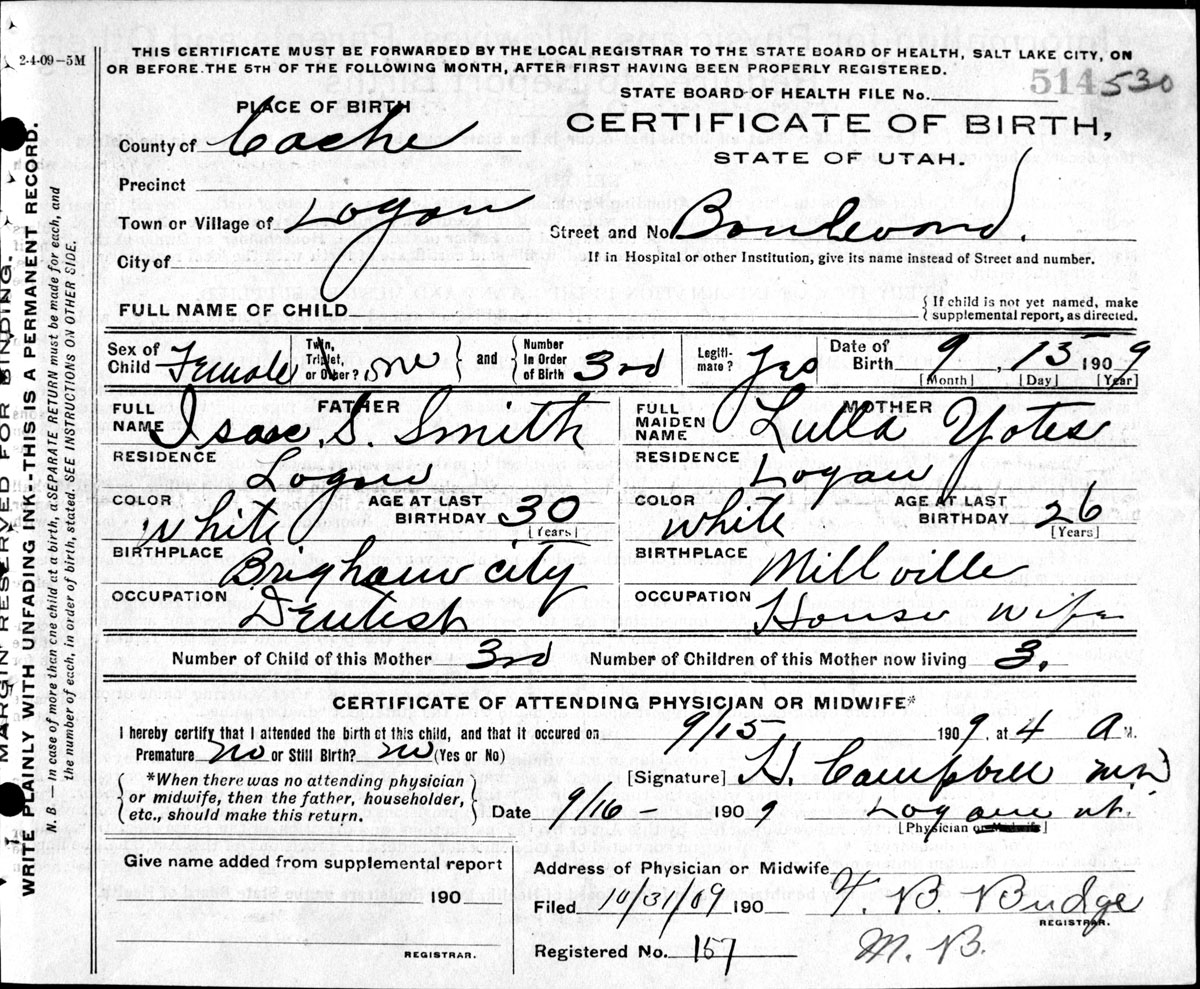 2-4-09-5M
THIS CERTIFICATE MUST BE FORWARDED BY THE LOCAL REGISTRAR TO THE STATE BOARD OF HEALTH, SALT LAKE CITY, ON
OR BEFORE THE 5TH OF THE FOLLOWING MONTH, AFTER FIRST HAVING BEEN PROPERLY REGISTERED.
STATE BOARD OF HEALTH FILE No. 514 530
PLACE OF BIRTH
CERTIFICATE OF BIRTH,
STATE OF UTAH.
County of Cache
Precinct
Town or Village of Logan
Street and No Boulevard.
City of
If in Hospital or other Institution, give its name instead of Street and number.
FULL NAME OF CHILD
If child is not yet named, make
supplemental report, as directed.
Sex of Child Female
Twin, Triplet, or Other? one
and
Number in Order of Birth 3rd
Legiti-mate? Yes
Date of Birth 9, 15 1909
[Month] [Day] [Year]
FATHER
FULL NAME Isaac S. Smith
RESIDENCE Logan
COLOR White
AGE AT LAST BIRTHDAY 30
[Years]
BIRTHPLACE Brigham city
OCCUPATION Dentist
MOTHER
FULL MAIDEN NAME Lulla Yates
RESIDENCE Logan
COLOR White
AGE AT LAST BIRTHDAY 26
[Years]
BIRTHPLACE Millville
OCCUPATION House wife
Number of Child of this Mother 3rd Number of Children of this Mother now living 3.
CERTIFICATE OF ATTENDING PHYSICIAN OR MIDWIFE*
I hereby certify that I attended the birth of this child, and that it occured on 9/15 1909, at 4 A M.
Premature no or Still Birth? no (Yes or No)
*When there was no attending physician
or midwife, then the father, householder,
etc., should make this return.
[Signature] H. Campbell M.D.
Date 9/16 - 1909 Logan ut.
[Physician or Midwife]
Give name added from supplemental report
190
REGISTRAR.
Address of Physician or Midwife
Filed 10/31/09 190 T. B. Budge
REGISTRAR.
Registered No. 157 M. B.
MARGIN RESERVED FOR BINDING.
WRITE PLAINLY WITH UNFADING INK--THIS IS A PERMANENT RECORD.
N. B. — in case of more than one child at a birth, a SEPARATE RETURN must be made for each, and
the number of each, in order of birth, stated. SEE INSTRUCTIONS ON OTHER SIDE.